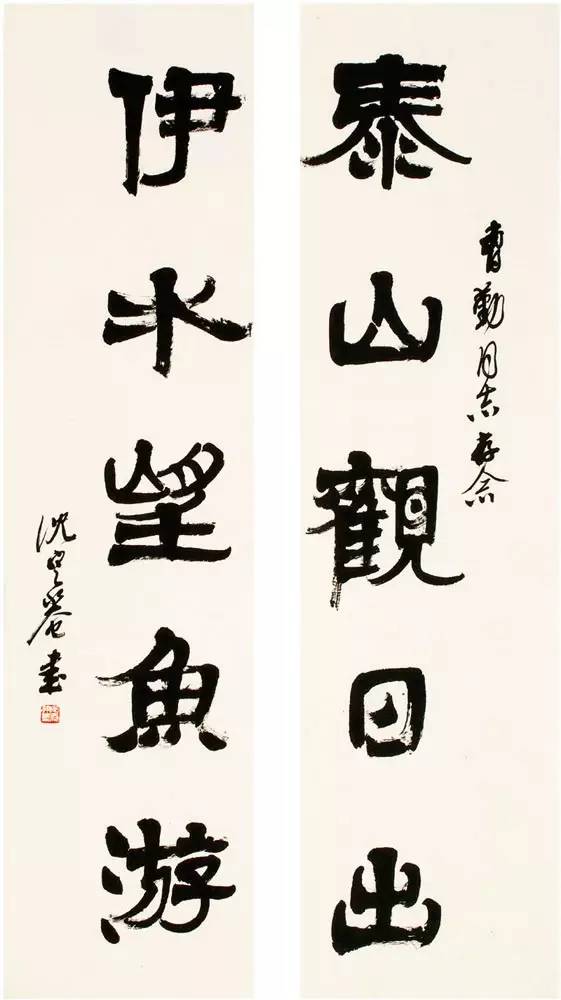 泰山觀日出
曹勤同志存念
伊水望魚游
沈定菴書